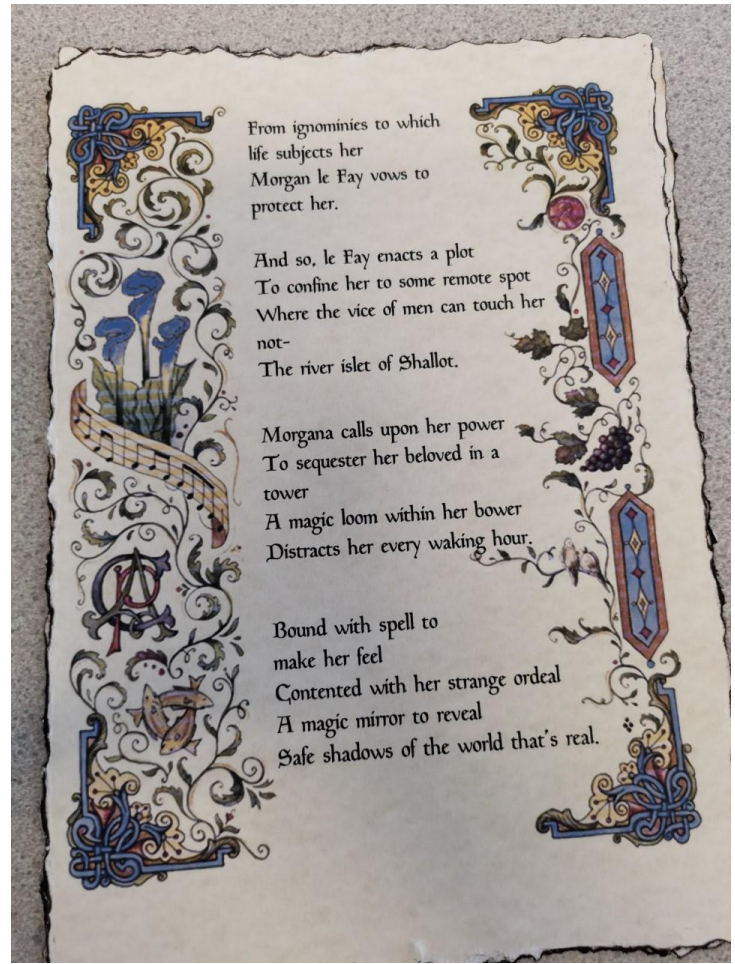 From ignominies to which
life subjects her
Morgan le Fay vows to
protect her.
And so, le Fay enacts a plot
To confine her to some remote spot
Where the vice of men can touch her
not-
The river islet of Shallot.
Morgana calls upon her power
To sequester her beloved in a
tower
A magic loom within her bower
Distracts her every waking hour.
Bound with spell to
make her feel
Contented with her strange ordeal
A magic mirror to reveal
Safe shadows of the world that's real.